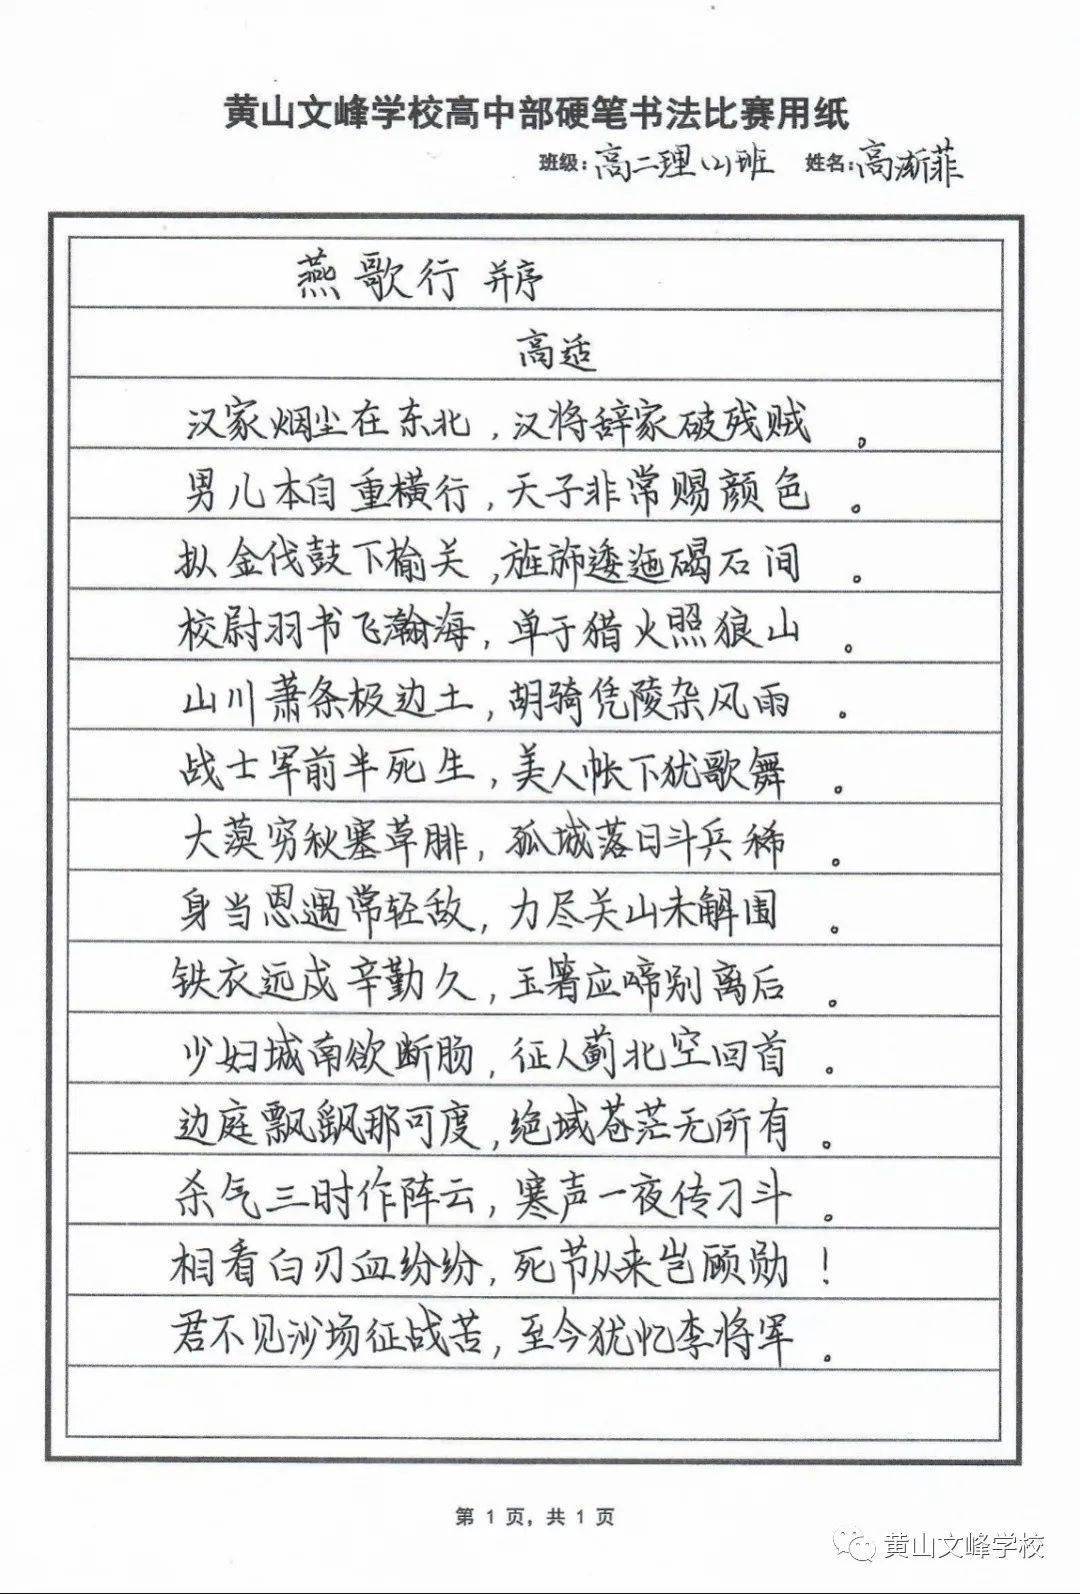 黄山文峰学校高中部硬笔书法比赛用纸
班级:高二理(2)班 姓名:高渐菲
燕歌行 并序
高适
汉家烟尘在东北,汉将辞家破残贼。
男儿本自重横行,天子非常赐颜色。
扒金伐鼓下榆关,旌旆逶迤碣石间。
校尉羽书飞瀚海,单于猎火照狼山。
山川萧条极边土,胡骑凭陵杂风雨。
战士军前半死生,美人帐下犹歌舞。
大漠穷秋塞草腓,孤城落日斗兵稀。
身当恩遇常轻敌,力尽关山未解围。
铁衣远戍辛勤久,玉箸应啼别离后。
少妇城南欲断肠,征人蓟北空回首。
边庭飘飖那可度,绝域苍茫无所有。
杀气三时作阵云,寒声一夜传刁斗。
相看白刃血纷纷,死节从来岂顾勋!
君不见沙场征战苦,至今犹忆李将军。
第 1 页, 共 1 页
黄山文峰学校